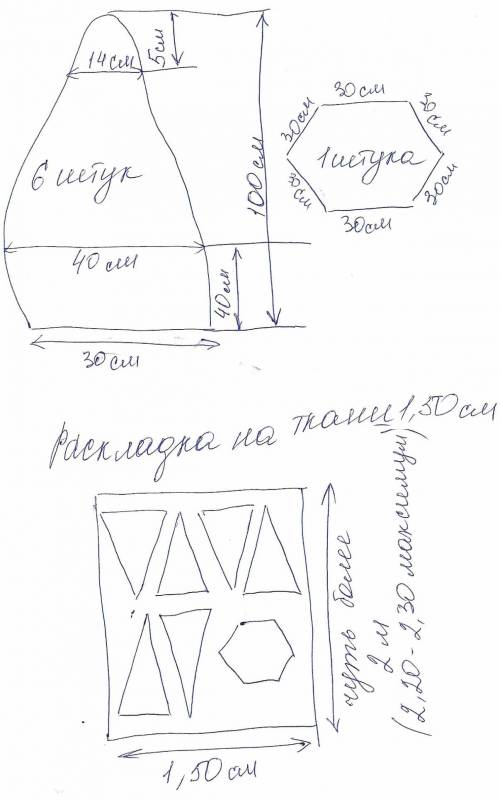 14см
5см
6 штук
100см
40 см
40см
30см
30см
30см
30см
1штука
30см
30см
30см
Раскладка на ткани 1,50 см
чуть более
2 м
(2,20-2,30 максимум)
1,50 см